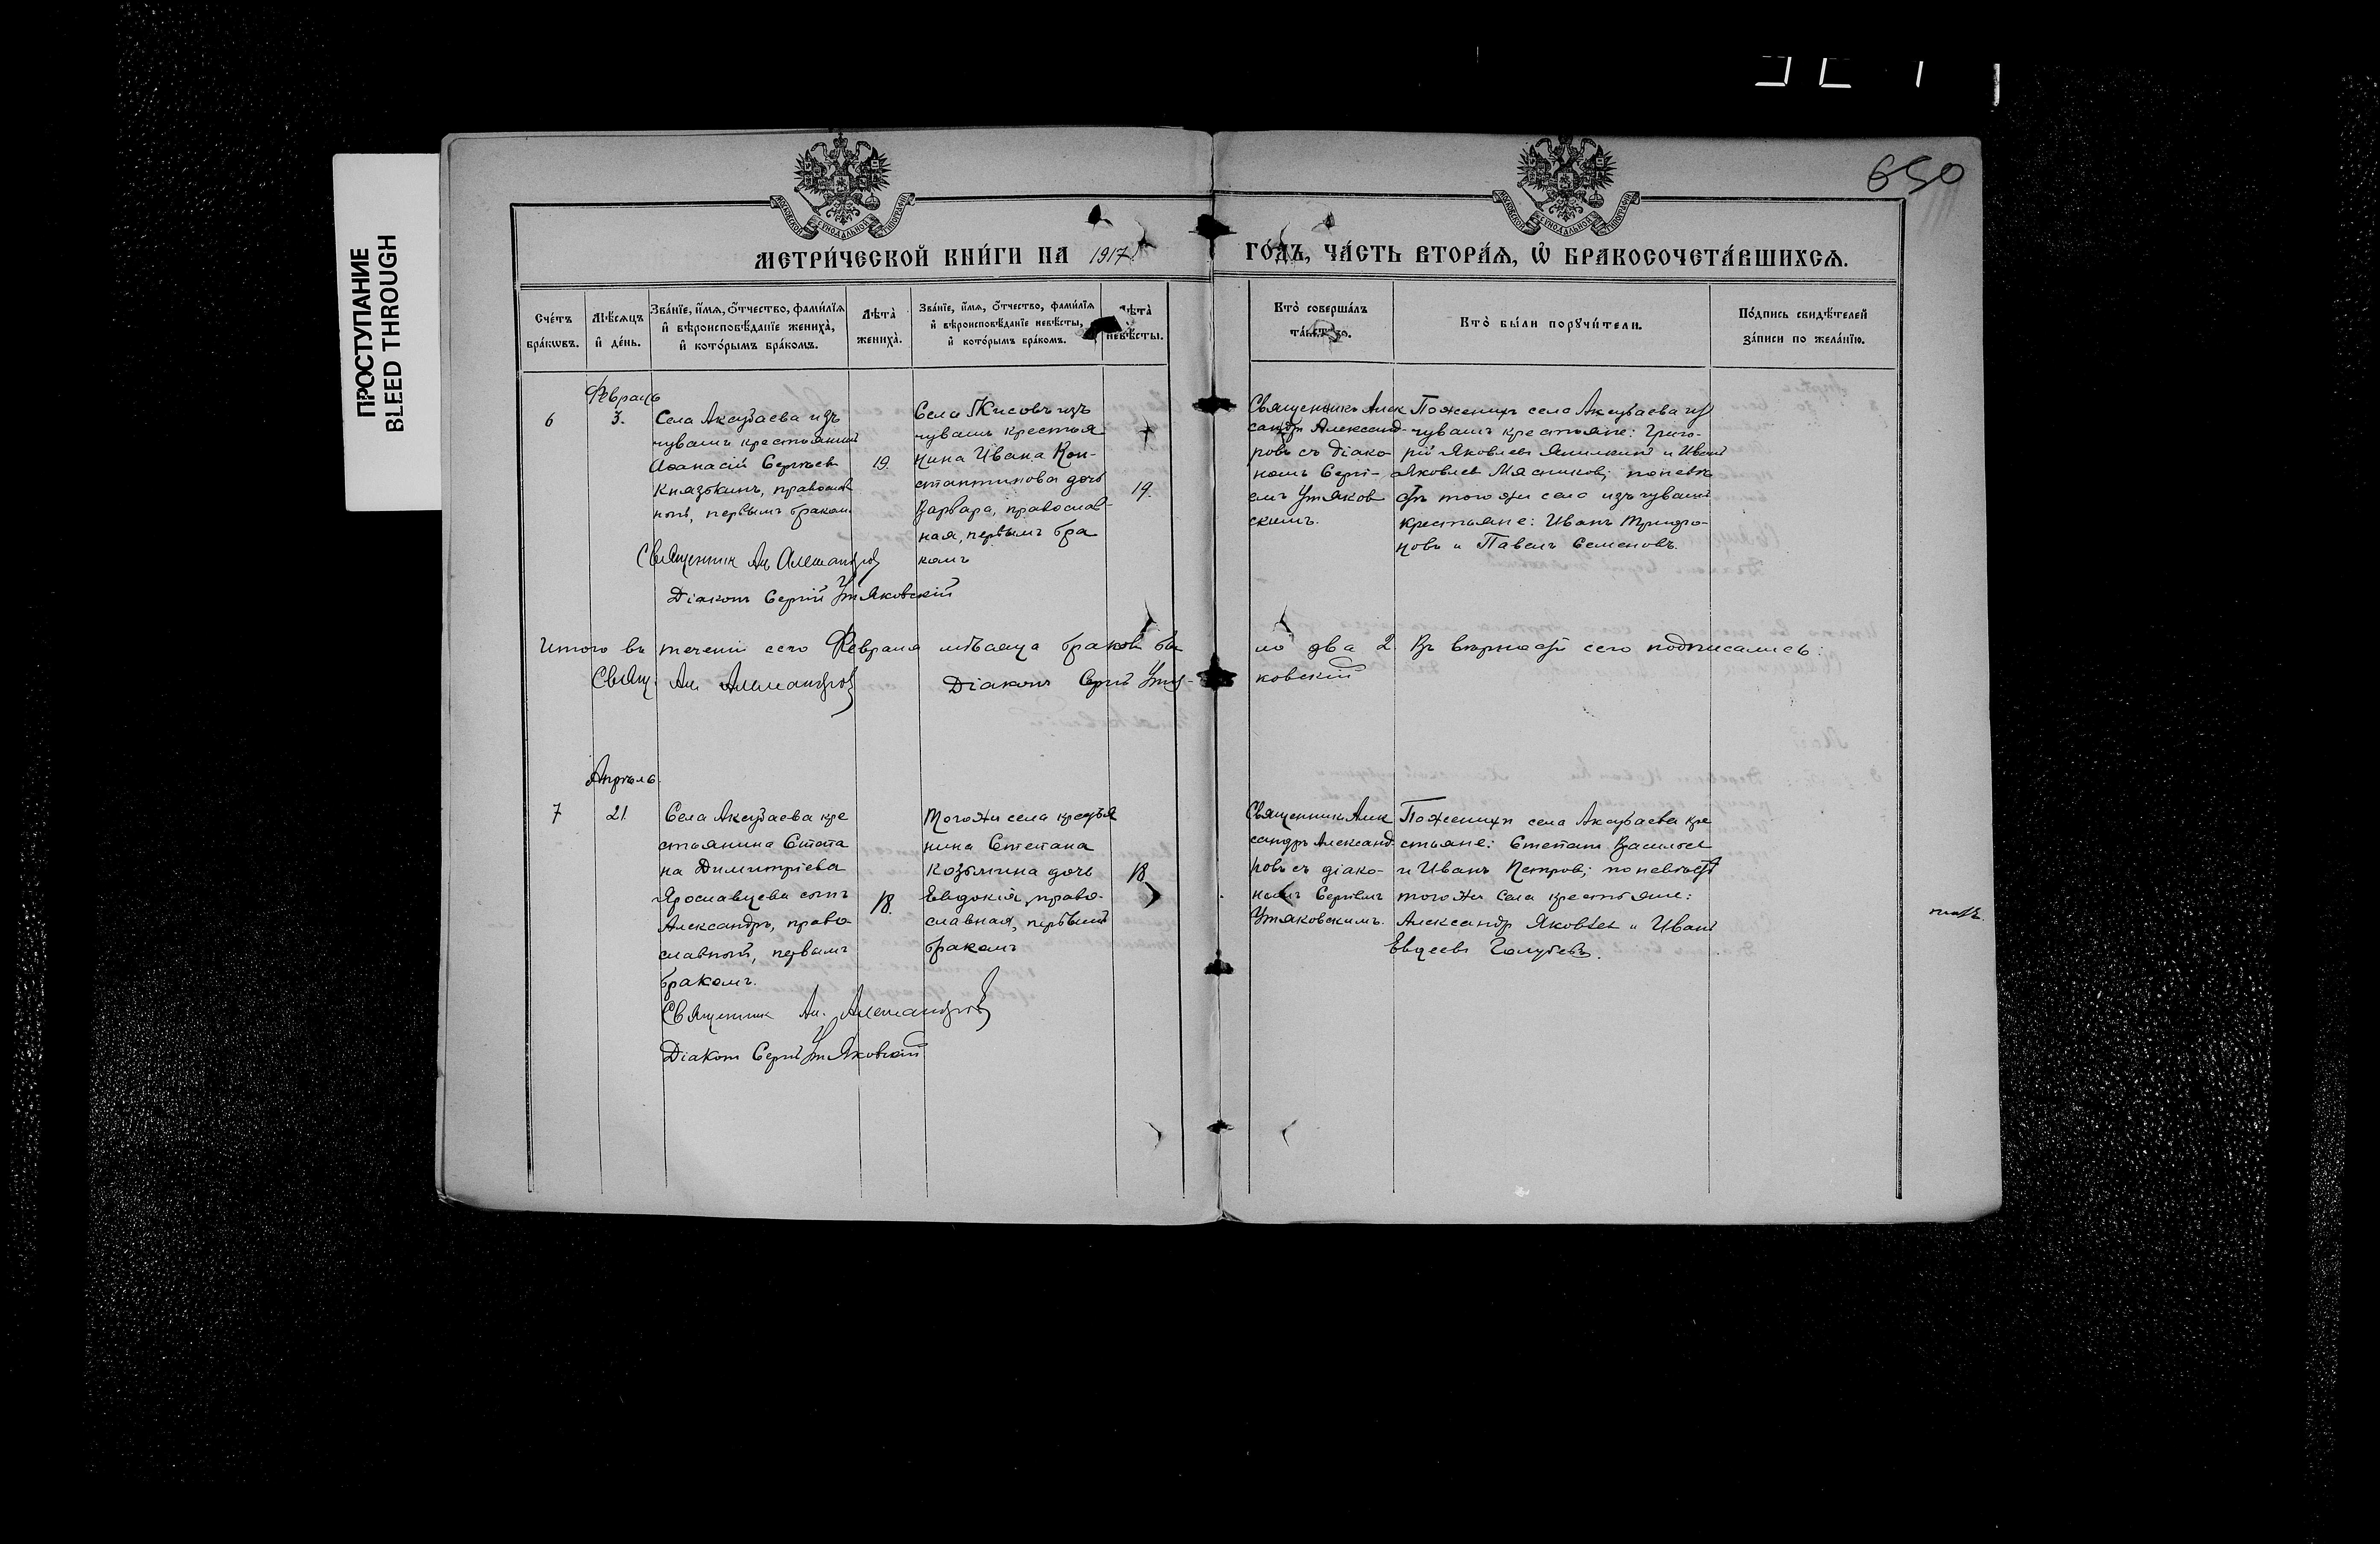 ПРОСТУПАНИЕ
BLEED THROUGH
650
МЕТРИ́ЧЕСКОЙ КНИ́ГИ НА 1917
ГО́ДЪ, ЧА́СТЬ ВТОРА́Ѧ, Ѽ БРАКОСОЧЕТА́ВШИХСѦ.
Сче́тъ бра́кѡвъ.
Мѣ́сѧцъ и҆ де́нь.
Зва́нїе, и҆́мѧ, о҆́тчество, фами́лїѧ
и҆ вѣроисповѣ́данїе жениха̀,
и҆ кото́рымъ бра́комъ.
Лѣта̀ жениха̀.
Зва́нїе, и҆́мѧ, о҆́тчество, фами́лїѧ
и҆ вѣроисповѣ́данїе невѣ́сты,
и҆ кото́рымъ бра́комъ.
Лѣта̀ невѣ́сты.
Кто̀ соверша́лъ
та́инство.
Кто̀ бы́ли порꙋчи́тели.
По́дпись свидѣ́телей
за́писи по жела́нїю.
Февраль
6
3.
Села Аксубаева изъ
чувашъ крестьянинъ
Аѳанасій Сергѣевъ
Князькинъ, православ
ный, первымъ бракомъ
19.
Села Кисовъ изъ
чувашъ крестья
нина Ивана Кон-
стантинова дочь
Варвара, православ-
ная, первымъ бра
комъ
19.
Священникъ Алек
сандръ Александ-
ровъ съ діако-
номъ Сергі-
емъ Утяков
скимъ.
По женихѣ села Аксубаева изъ
чувашъ крестьяне: Григо-
рій Яковлевъ и Иванъ
Яковлевъ Мясниковъ; по невѣ
стѣ того же села изъ чувашъ
крестьяне: Иванъ Трифо-
новъ и Павелъ Семеновъ.
Священникъ Ал. Александровъ
Діаконъ Сергій Утяковскій
Итого въ теченіи сего Февраля мѣсяца браковъ бы
ло два 2. Въ вѣрности сего подписались:
Свящ. Ал. Александровъ
Діаконъ Сергій Утя-
ковскій
Апрѣль
7
21.
Села Аксубаева кре
стьянина Степа
на Димитріева
Ярославцева сынъ
Александръ, право
славный, первымъ
бракомъ.
18.
Того же села крестья
нина Степана
Козьмина дочь
Евдокія, право-
славная, первымъ
бракомъ
18
Священникъ Алек
сандръ Александ-
ровъ съ діако-
номъ Сергіемъ
Утяковскимъ.
По женихѣ села Аксубаева кре
стьяне: Степанъ Васильевъ
и Иванъ Петровъ; по невѣстѣ
того же села крестьяне:
Александръ Яковлевъ и Иванъ
Евсеевъ Голубевъ.
Священникъ Ал. Александровъ
Діаконъ Сергій Утяковскій